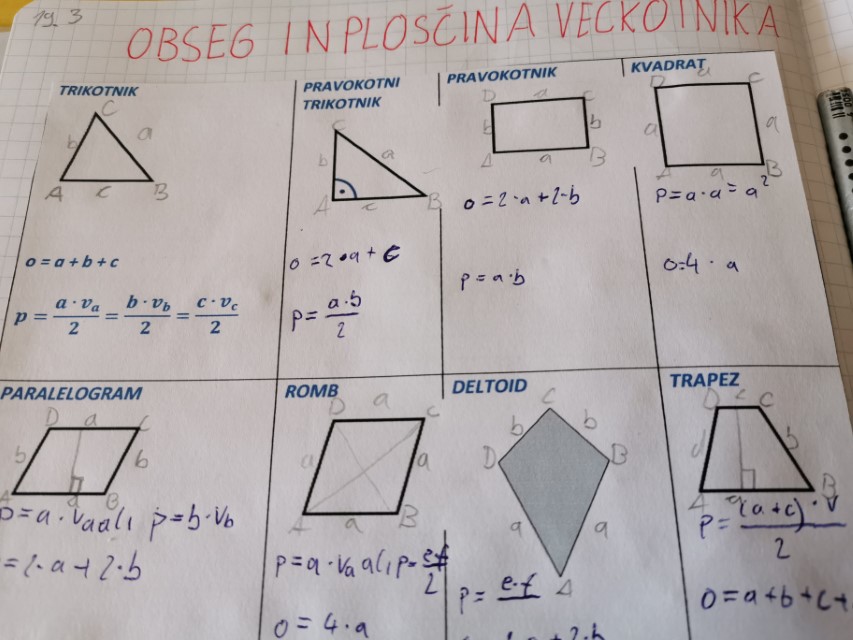 19. 3
OBSEG IN PLOŠČINA VEČKOTNIKA
TRIKOTNIK
C
b a
A c B
o = a + b + c
p = a · vₐ / 2 = b · v_b / 2 = c · v_c / 2
PRAVOKOTNI
TRIKOTNIK
C
b a
A c B
o = 2 · a + c
p = a · b / 2
PRAVOKOTNIK
D a C
b b
A a B
o = 2 · a + 2 · b
p = a · b
KVADRAT
D a C
a a
A a B
p = a · a = a²
o = 4 · a
PARALELOGRAM
D a C
b b
A a B
p = a · va ali p = b · vb
= 2 · a + 2 · b
ROMB
D a C
a a
A a B
p = a · va ali p = e·f / 2
o = 4 · a
DELTOID
C
b b
D B
a a
A
p = e · f
2 · b
TRAPEZ
D c C
d b
A a B
p = (a + c) · v / 2
o = a + b + c +